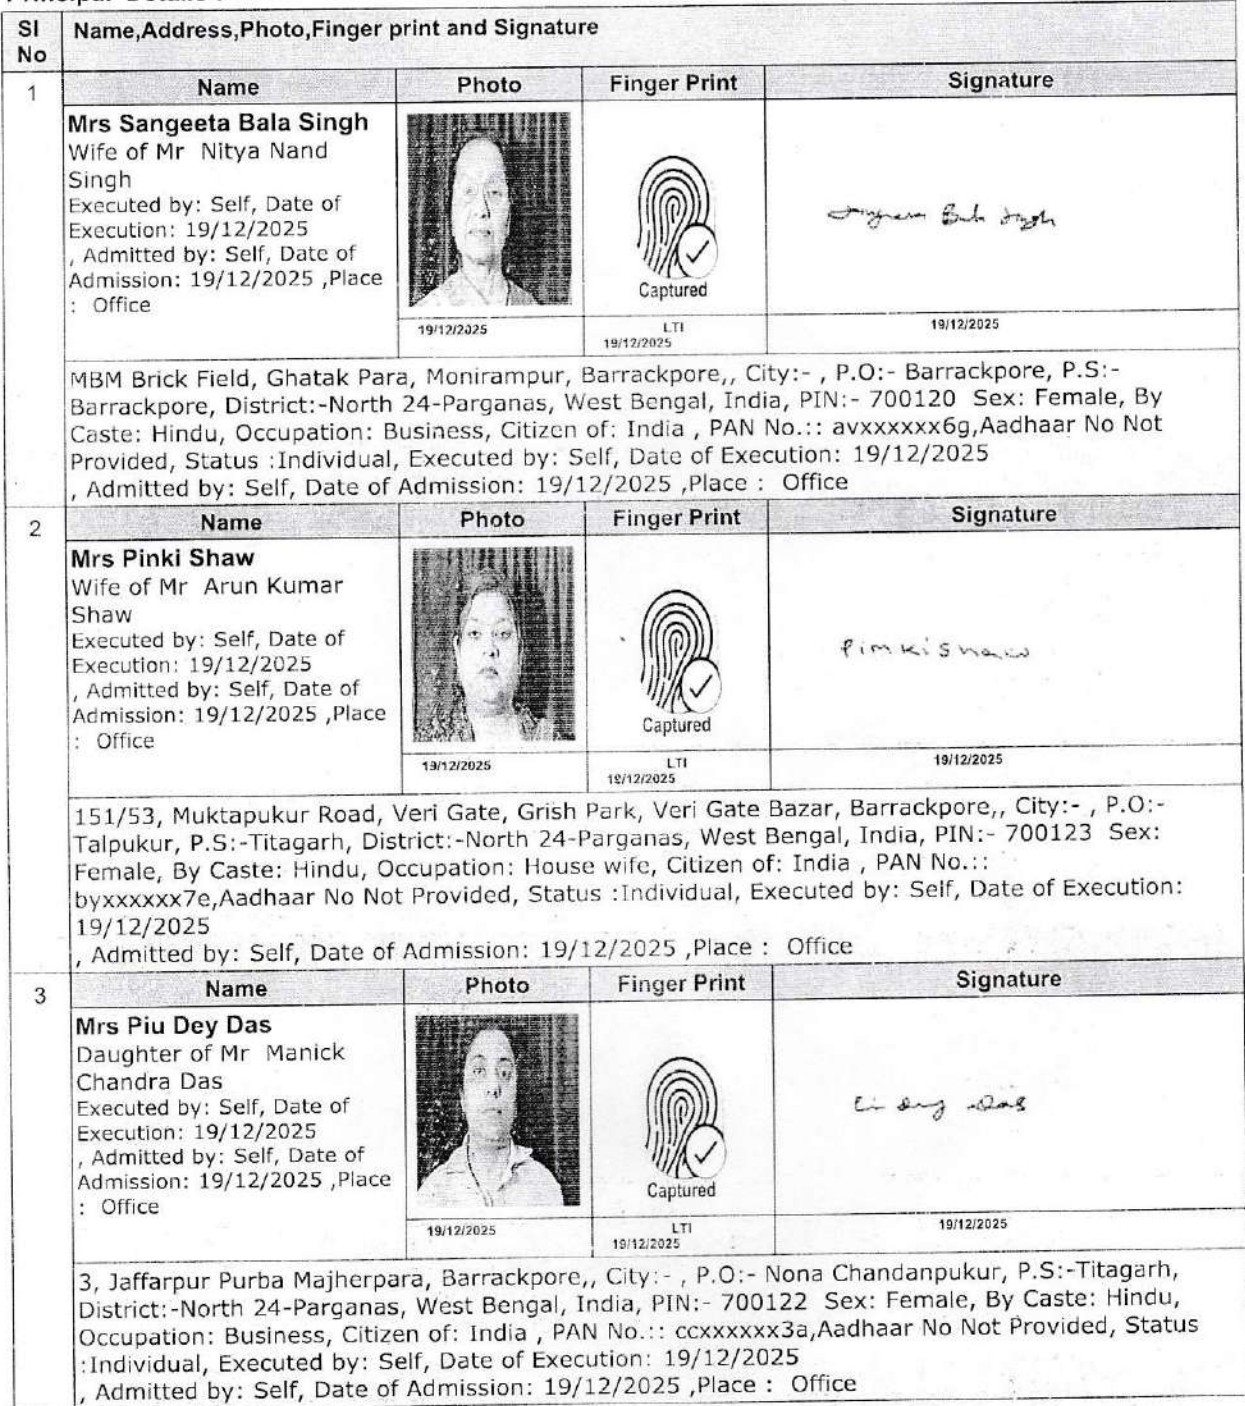 SI No Name,Address,Photo,Finger print and Signature
1 Name Photo Finger Print Signature
Mrs Sangeeta Bala Singh
Wife of Mr Nitya Nand
Singh
Executed by: Self, Date of
Execution: 19/12/2025
, Admitted by: Self, Date of
Admission: 19/12/2025 ,Place
: Office
Captured
Bala Singh
19/12/2025 LTI 19/12/2025 19/12/2025
MBM Brick Field, Ghatak Para, Monirampur, Barrackpore,, City:- , P.O:- Barrackpore, P.S:-
Barrackpore, District:-North 24-Parganas, West Bengal, India, PIN:- 700120 Sex: Female, By
Caste: Hindu, Occupation: Business, Citizen of: India , PAN No.:: avxxxxxx6g,Aadhaar No Not
Provided, Status :Individual, Executed by: Self, Date of Execution: 19/12/2025
, Admitted by: Self, Date of Admission: 19/12/2025 ,Place : Office
2 Name Photo Finger Print Signature
Mrs Pinki Shaw
Wife of Mr Arun Kumar
Shaw
Executed by: Self, Date of
Execution: 19/12/2025
, Admitted by: Self, Date of
Admission: 19/12/2025 ,Place
: Office
Captured
Pinki Shaw
19/12/2025 LTI 19/12/2025 19/12/2025
151/53, Muktapukur Road, Veri Gate, Grish Park, Veri Gate Bazar, Barrackpore,, City:- , P.O:-
Talpukur, P.S:-Titagarh, District:-North 24-Parganas, West Bengal, India, PIN:- 700123 Sex:
Female, By Caste: Hindu, Occupation: House wife, Citizen of: India , PAN No.::
byxxxxxx7e,Aadhaar No Not Provided, Status :Individual, Executed by: Self, Date of Execution:
19/12/2025
, Admitted by: Self, Date of Admission: 19/12/2025 ,Place : Office
3 Name Photo Finger Print Signature
Mrs Piu Dey Das
Daughter of Mr Manick
Chandra Das
Executed by: Self, Date of
Execution: 19/12/2025
, Admitted by: Self, Date of
Admission: 19/12/2025 ,Place
: Office
Captured
Dey Das
19/12/2025 LTI 19/12/2025 19/12/2025
3, Jaffarpur Purba Majherpara, Barrackpore,, City:- , P.O:- Nona Chandanpukur, P.S:-Titagarh,
District:-North 24-Parganas, West Bengal, India, PIN:- 700122 Sex: Female, By Caste: Hindu,
Occupation: Business, Citizen of: India , PAN No.:: ccxxxxxx3a,Aadhaar No Not Provided, Status
:Individual, Executed by: Self, Date of Execution: 19/12/2025
, Admitted by: Self, Date of Admission: 19/12/2025 ,Place : Office